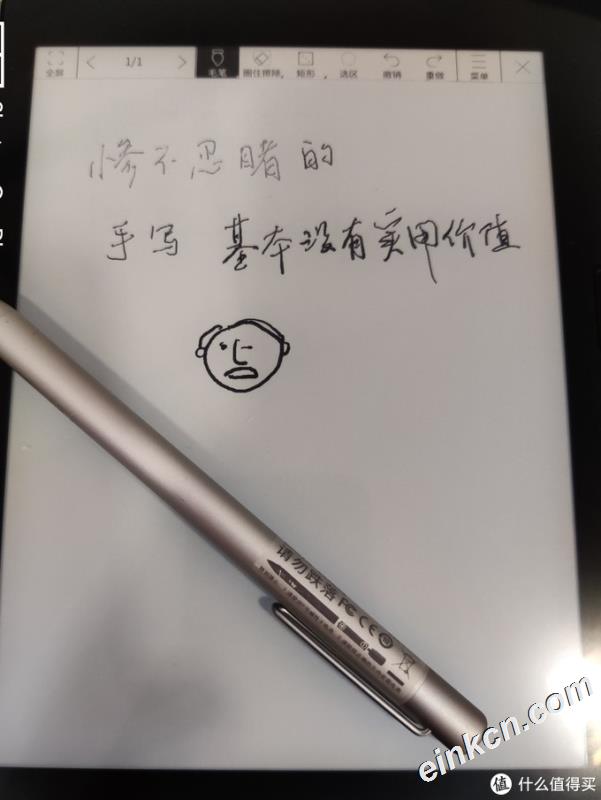 全屏 1/1 毛笔 圈住擦除, 矩形, 选区 撤销 重做 菜单
惨不忍睹的
手写 基本没有实用价值
请勿跌落 FC CE
einkcn.com
值 什么值得买